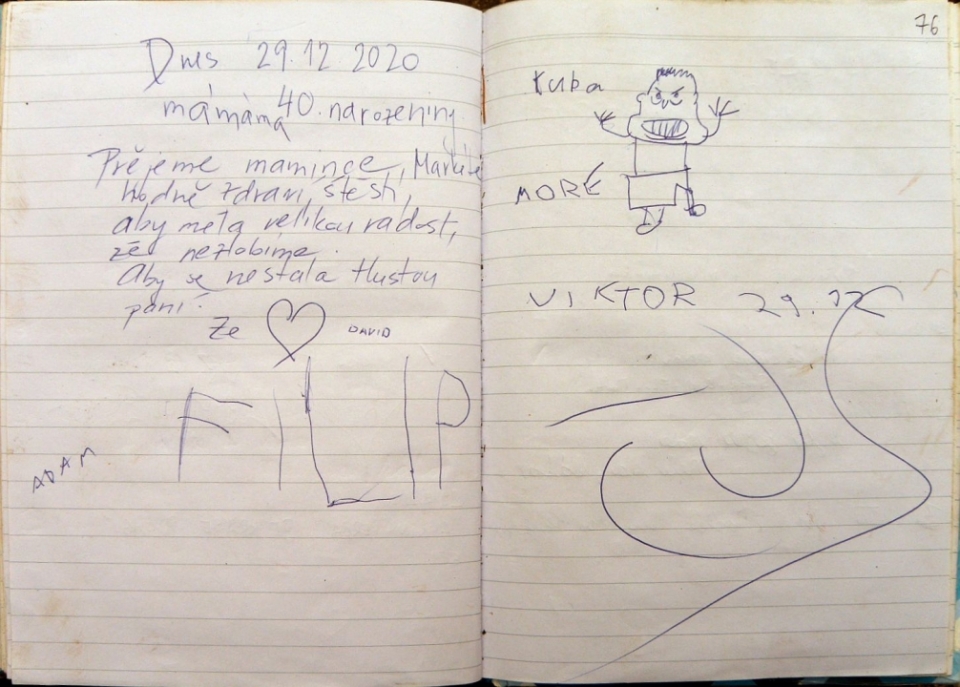 Dnes 29.12 2020
má máma 40. narozeniny
Přejeme mamince, Markétě
hodně zdraví, štěstí,
aby měla velikou radost,
že nezlobíme.
Aby se nestala tlustou
paní.
Ze ♡ DAVID
FILIP
ADAM
76
Kuba
MORE
VIKTOR 29.12